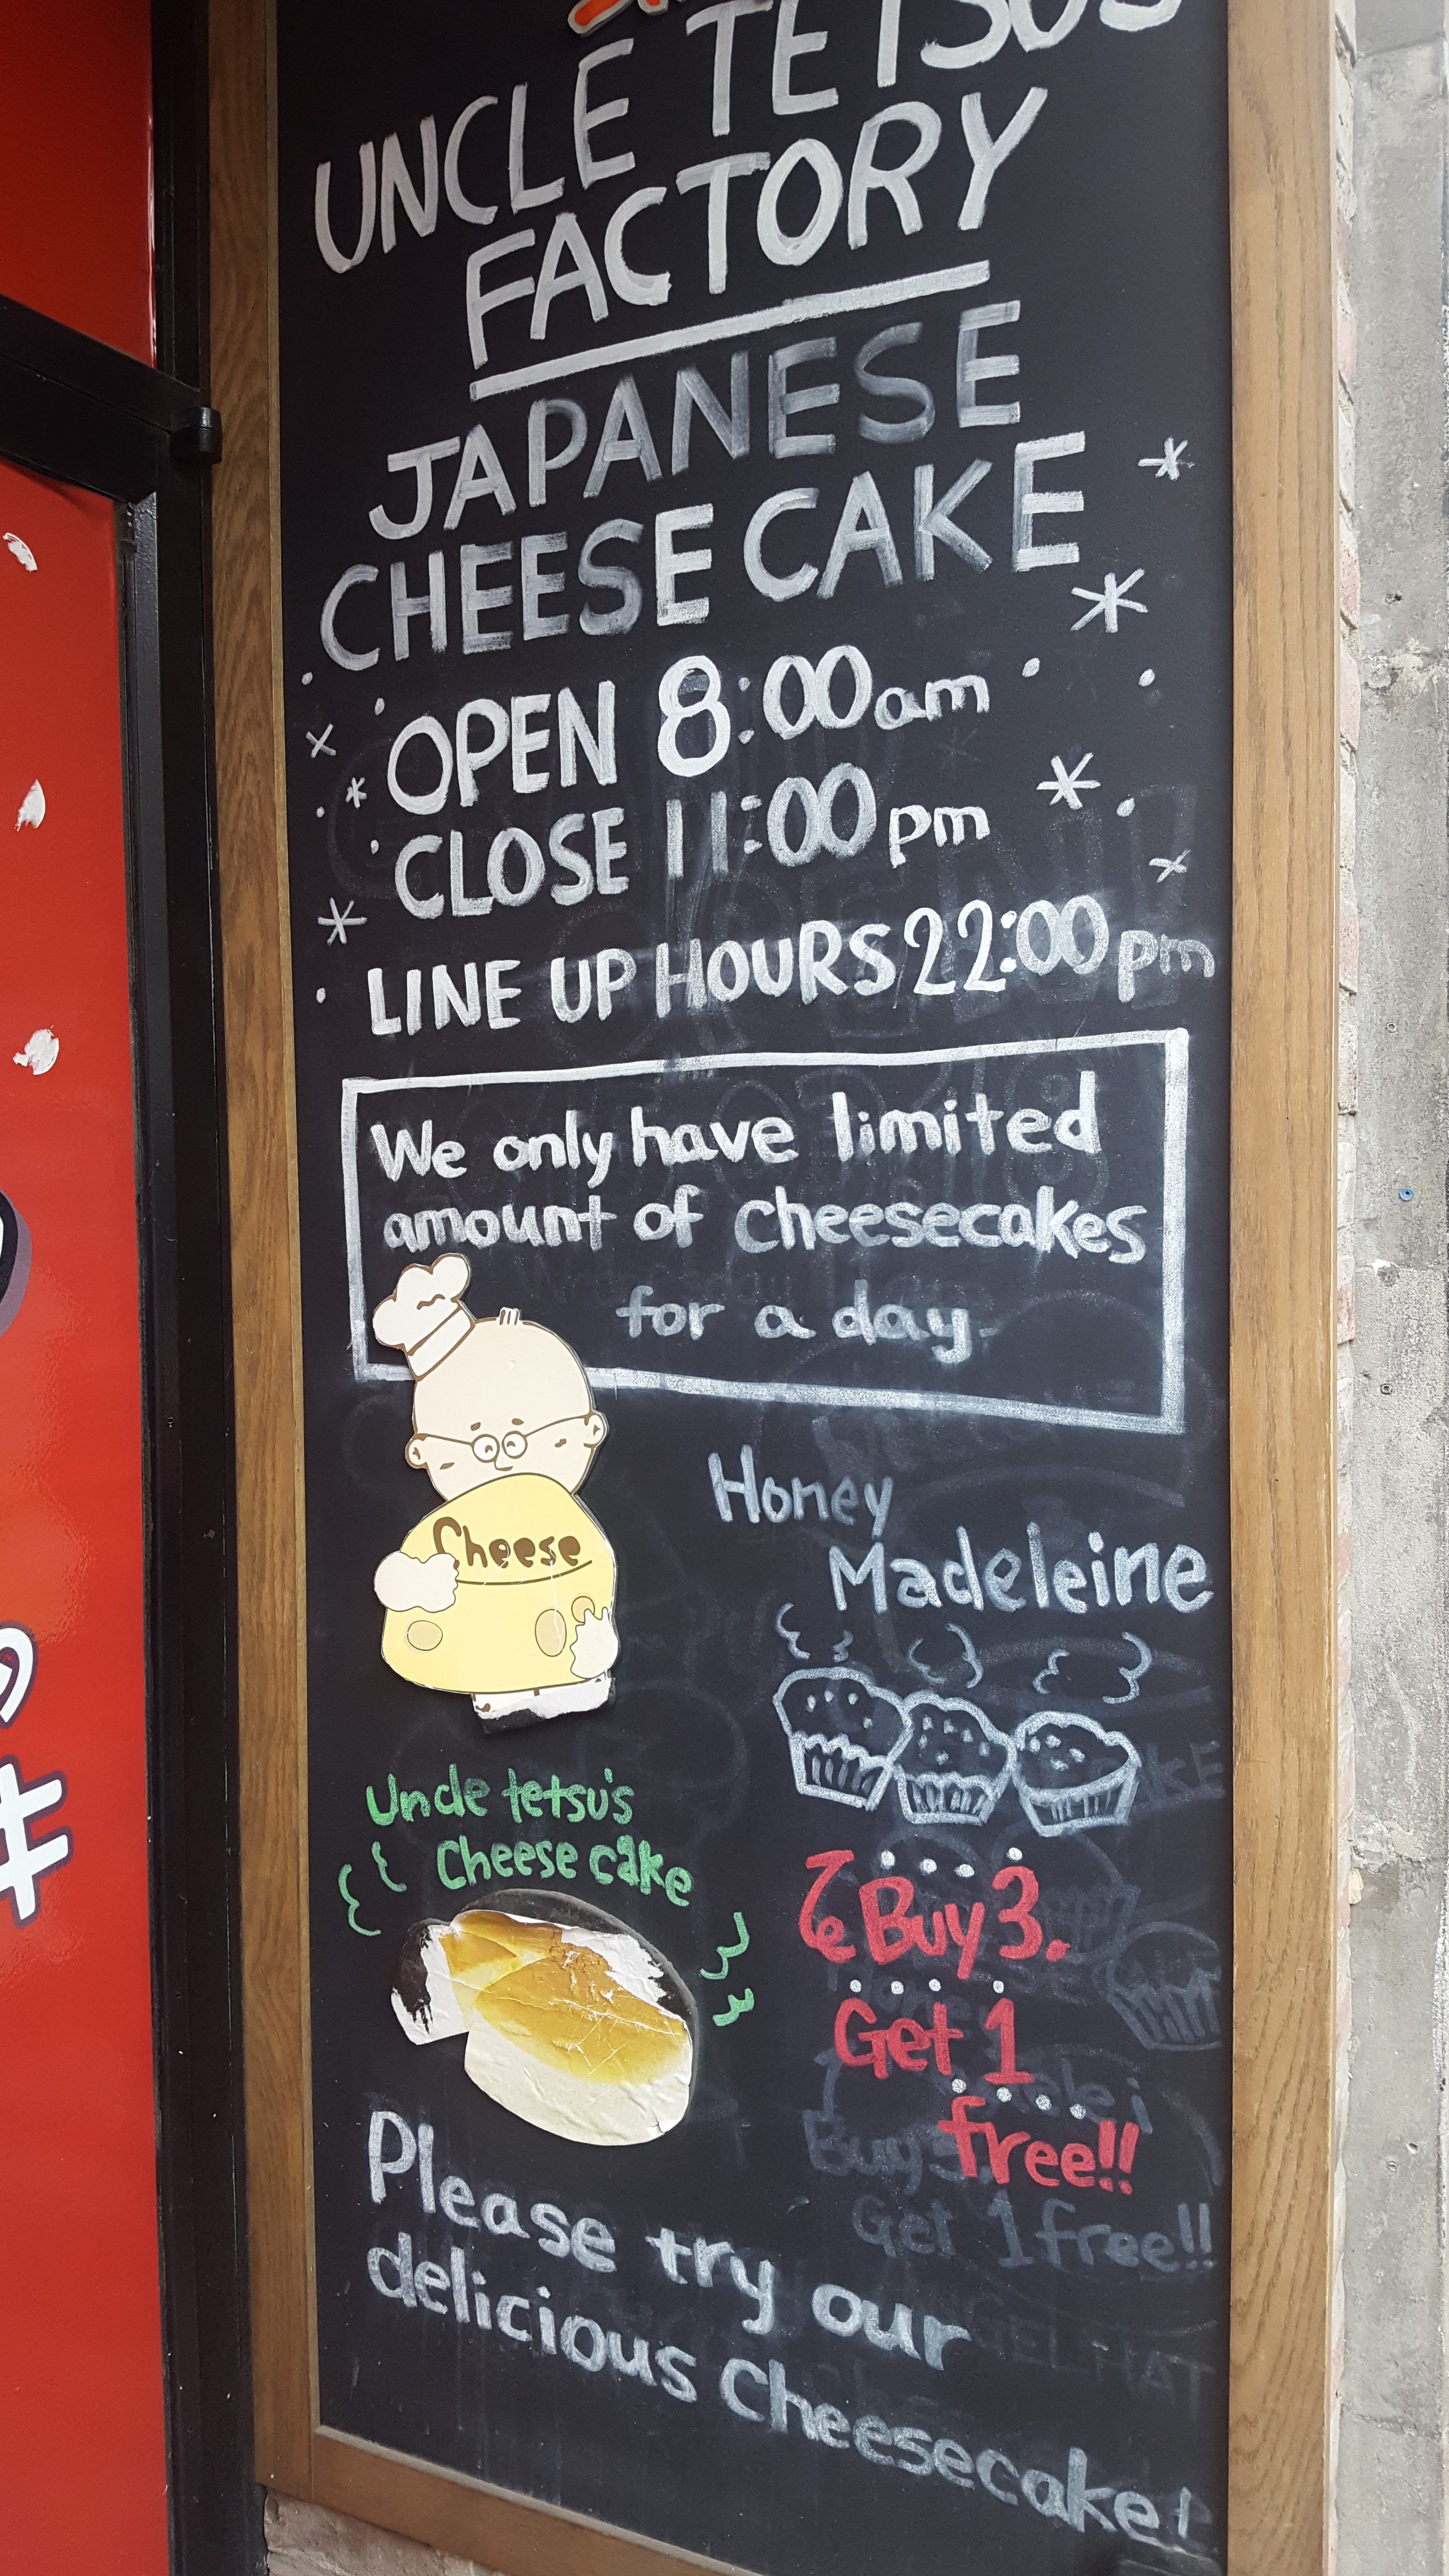 UNCLE TETSU'S
FACTORY
JAPANESE
CHEESE CAKE
OPEN 8:00am
CLOSE 11:00pm
LINE UP HOURS 22:00pm
We only have limited
amount of cheesecakes
for a day.
Cheese
Honey
Madeleine
Uncle tetsu's
Cheese cake
Buy 3.
Get 1
free!!
Buy 3
Get 1 free!!
Please try our
delicious Cheesecake!